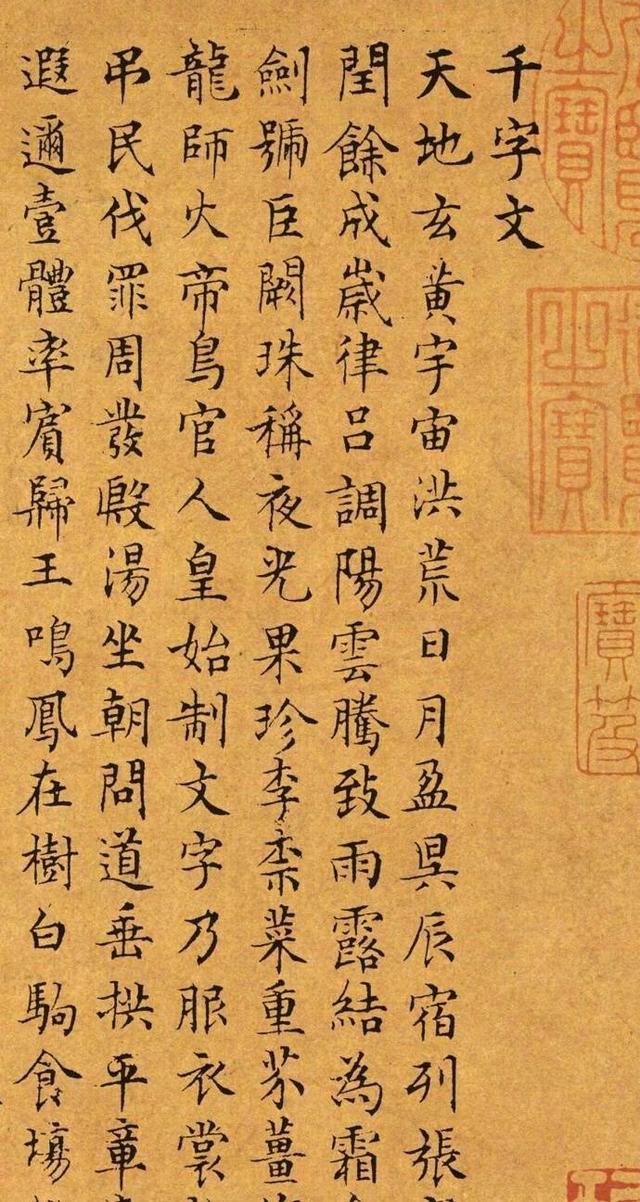 千字文
天地玄黃宇宙洪荒日月盈昃辰宿列張
閏餘成歲律呂調陽雲騰致雨露結為霜
劍號巨闕珠稱夜光果珍李柰菜重芥薑
龍師火帝鳥官人皇始制文字乃服衣裳
弔民伐罪周發殷湯坐朝問道垂拱平章
遐邇壹體率賓歸王鳴鳳在樹白駒食場